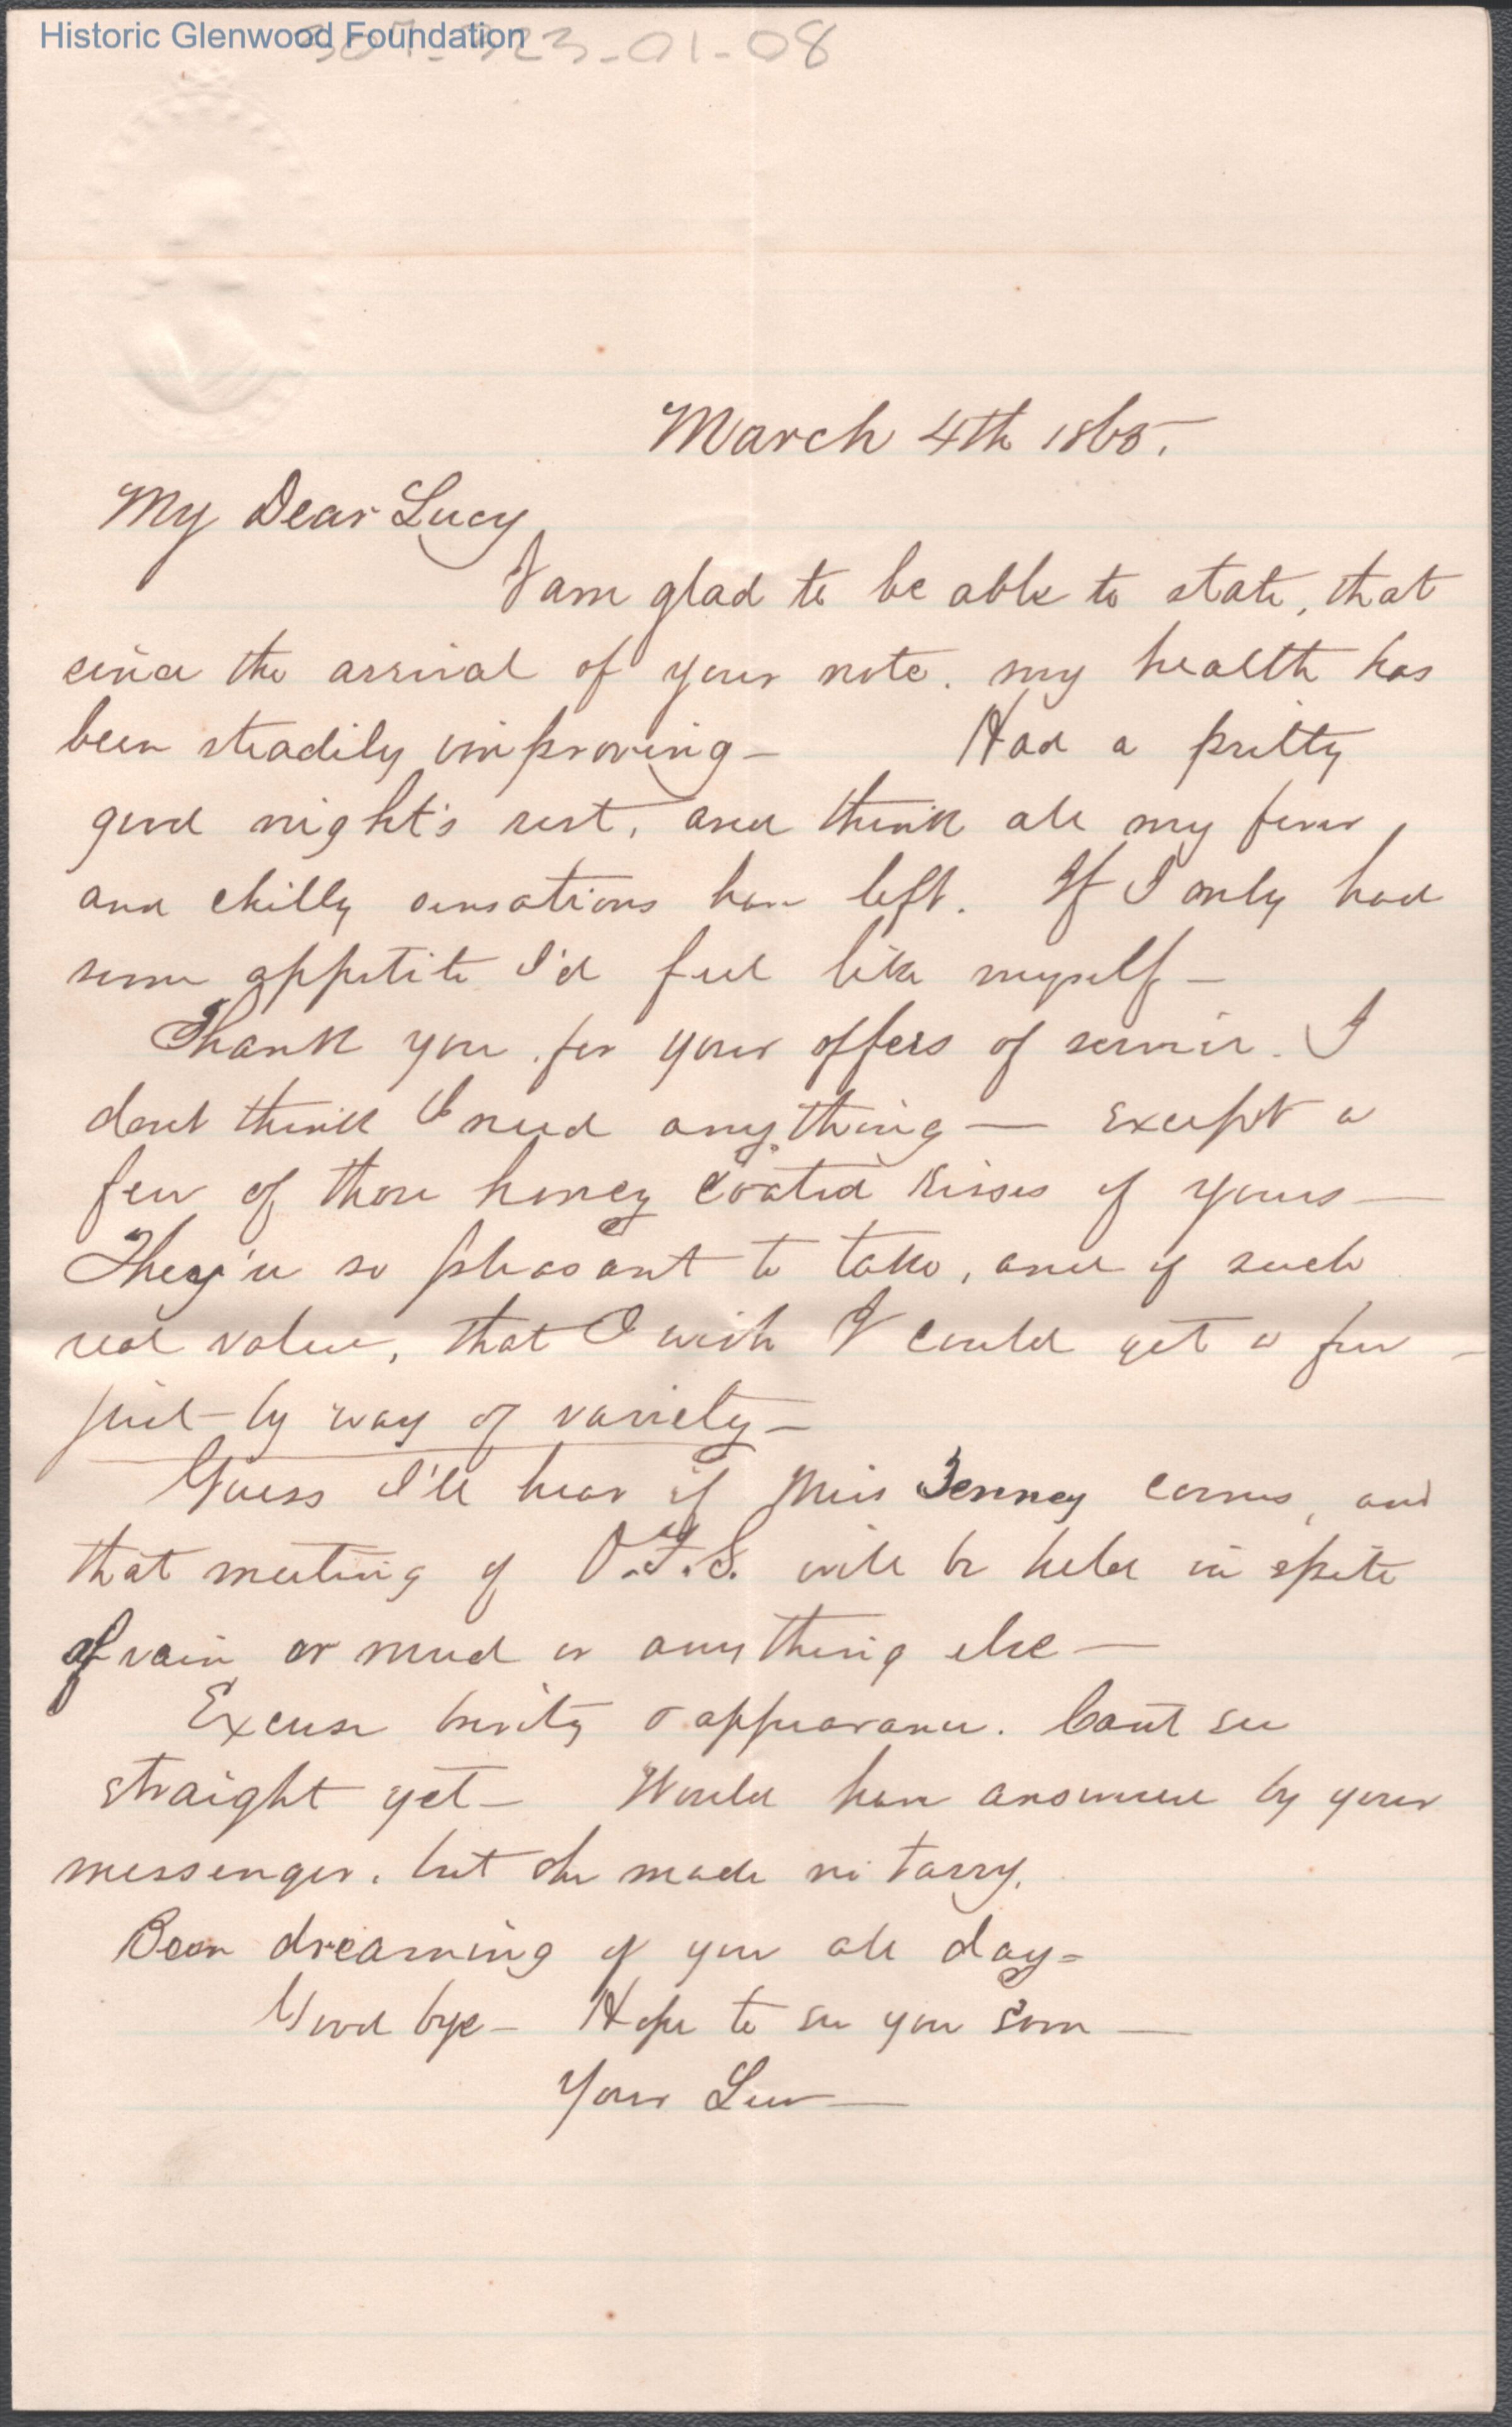 Historic Glenwood Foundation
23-01-08
March 4th 1865.
My Dear Lucy,
I am glad to be able to state, that
since the arrival of your note. my health has
been steadily improving — Had a pretty
good night's rest, and think all my fever,
and chilly sensations have left. If I only had
some appetite I'd feel like myself —
Thank you for your offers of service. I
dont think I need anything — except a
few of those honey coated kisses of yours —
They're so pleasant to take, and of such
real value, that I wish I could get a few —
just by way of variety —
Guess I'll hear if Miss Tenney comes, and
that meeting of will be held in spite
of rain or mud or anything else —
Excuse brevity & appearance. Cant see
straight yet — Would have answered by your
messenger, but she made no tarry.
Been dreaming of you all day —
Good bye — Hope to see you soon —
Your Lew —